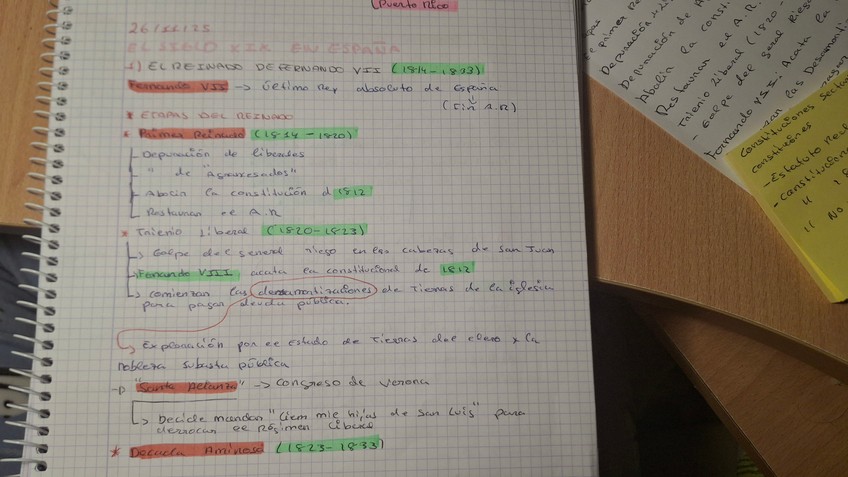 Puerto Rico
26/11/25
EL SIGLO XIX EN ESPAÑA
1) EL REINADO DE FERNANDO VII (1814-1833)
Fernando VII -> Último Rey absoluto de España
(Sin A.R)
* ETAPAS DEL REINADO
* Primer Reinado (1814-1820)
Depuración de liberales
" de "Afrancesados"
Abolir la constitución d 1812
Restaurar el A.R
* Trienio Liberal (1820-1823)
Golpe del general riego en las cabezas de San Juan
Fernando VIII acata la constitucional de 1812
comienzan las desamortizaciones de Tierras de la iglesia
para pagar deuda pública.
Explanación por el estado de Tierras del clero x la
nobleza subasta pública
"Santa -> Congreso de Verona
Decide mandar "Cien mil hijos de San Luis" para
derrocar el Régimen liberal
* Decada (1823-1833)
primer Re
Depuración
Depuración de A
Abolir la consti
Restaurar el A.R.
Trienio Liberal (1820-
- Golpe del Geral Riego
Fernando VII: Acata la
las Desamorti
Constituciones
- Estatuto Real
- Constitucion
11 1 8
11 NO